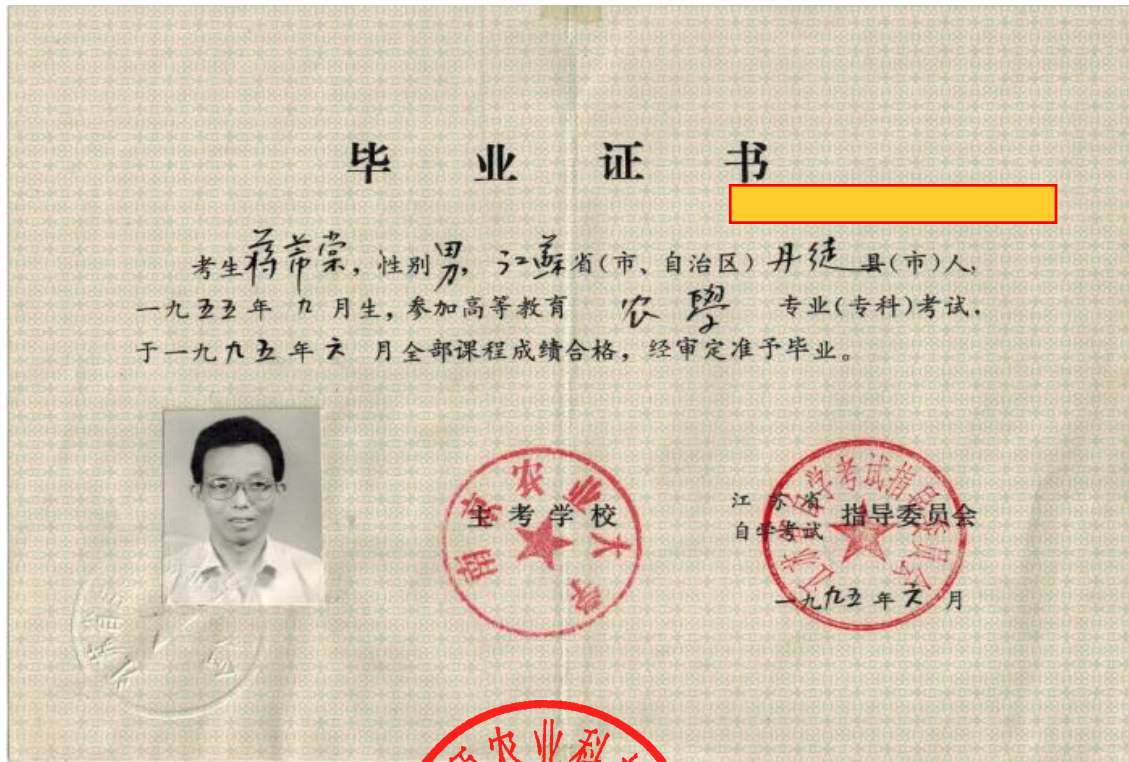 毕业证书
考生蒋芾棠，性别男，江蘇省(市、自治区)丹徒县(市)人，
一九五五年九月生，参加高等教育农學专业(专科)考试，
于一九九五年六月全部课程成绩合格，经审定准予毕业。
南京农业大学
主考学校
江苏省自学考试指导委员会
江苏省
自学考试
指导委员会
一九九五年六月
农业科